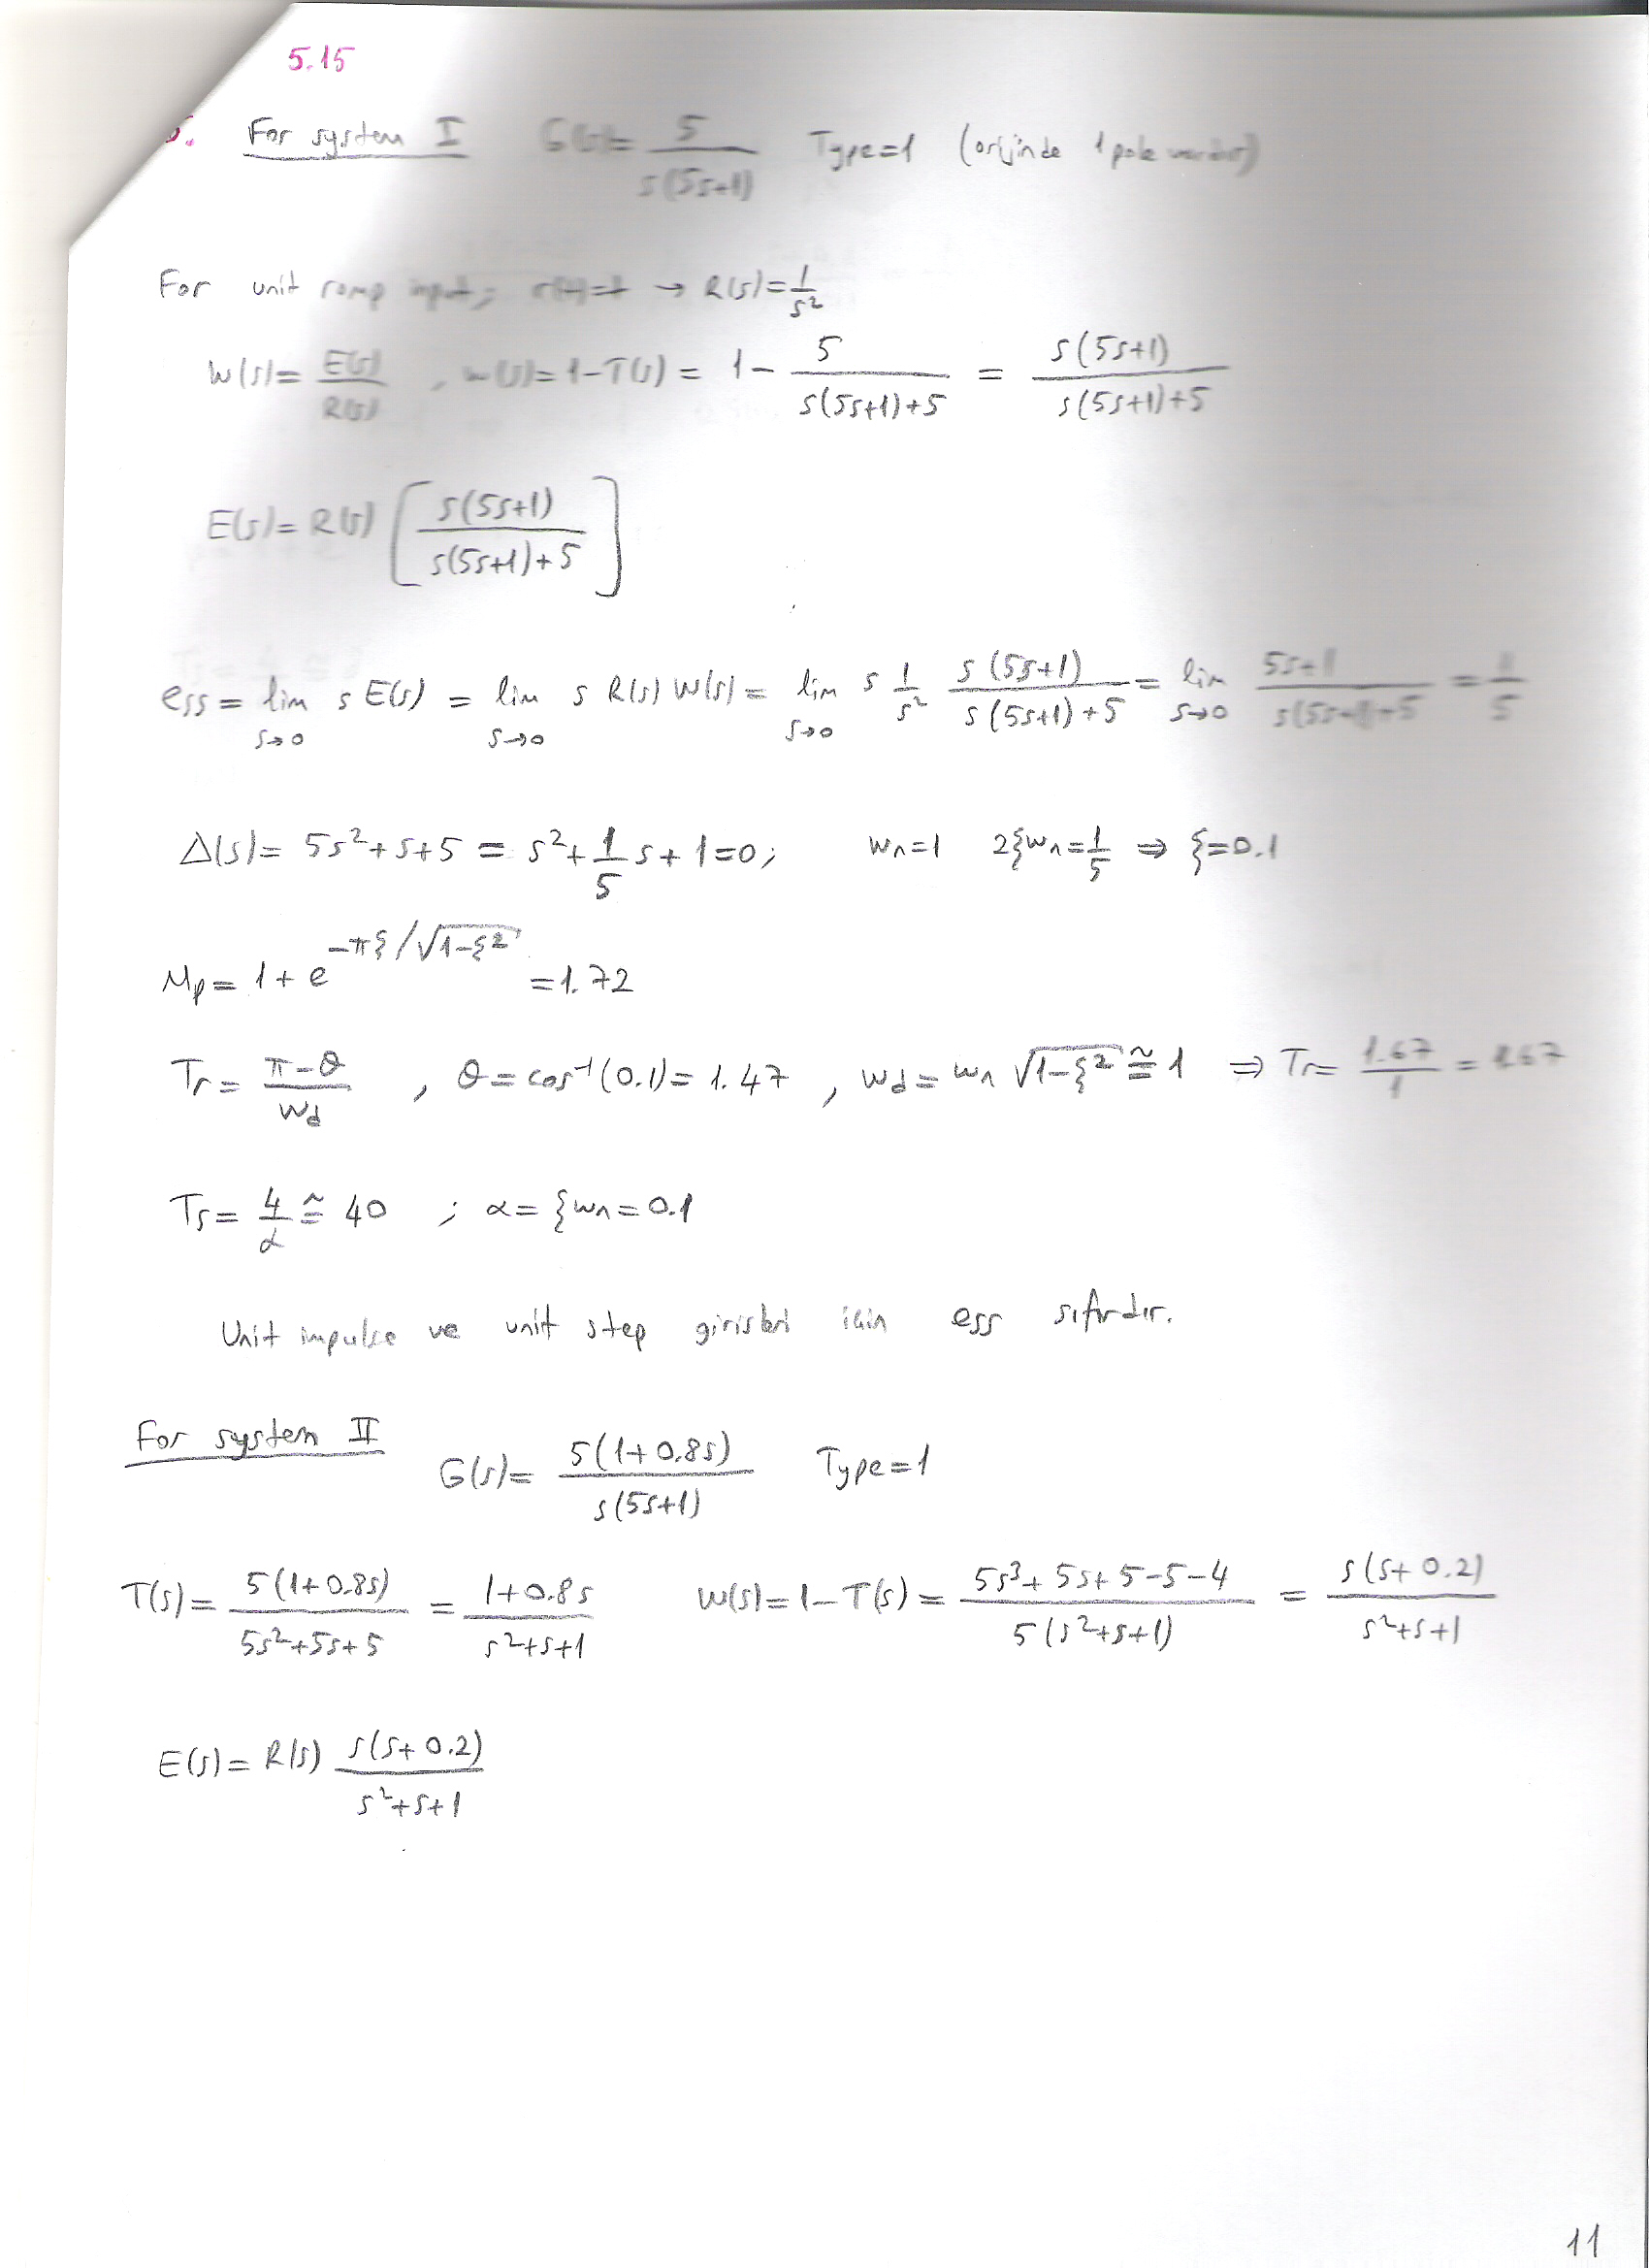 5.15
5. For system I G(s)= 5/(s(5s+1)) Type=1 (orijinde 1 pole vardır)
For unit ramp input; r(t)=t → R(s)=1/s²
W(s)= E(s)/R(s) , W(s)=1-T(s) = 1- 5/(s(5s+1)+5) = s(5s+1)/(s(5s+1)+5)
E(s)=R(s) [ s(5s+1)/(s(5s+1)+5) ]
ess = lim s→0 s E(s) = lim s→0 s R(s) W(s) = lim s→0 s 1/s² s(5s+1)/(s(5s+1)+5) = lim s→0 (5s+1)/(s(5s+1)+5) = 1/5
Δ(s)= 5s²+s+5 = s²+ 1/5 s + 1=0; wn=1 2ξwn=1/5 ⇒ ξ=0.1
Mp= 1+ e^(-πξ/√(1-ξ²)) =1.72
Tr= (π-θ)/wd , θ=cos⁻¹(0.1)=1.47 , wd= wn √(1-ξ²) ≅ 1 ⇒ Tr= 1.67/1 = 1.67
Ts= 4/α ≅ 40 ; α= ξwn=0.1
Unit impulse ve unit step girisleri icin ess sıfırdır.
For system II
G(s)= 5(1+0.8s)/(s(5s+1)) Type=1
T(s)= 5(1+0.8s)/(5s²+5s+5) = (1+0.8s)/(s²+s+1) W(s)=1-T(s)= (5s³+5s+5-5-4)/(5(s²+s+1)) = s(s+0.2)/(s²+s+1)
E(s)=R(s) s(s+0.2)/(s²+s+1)
11